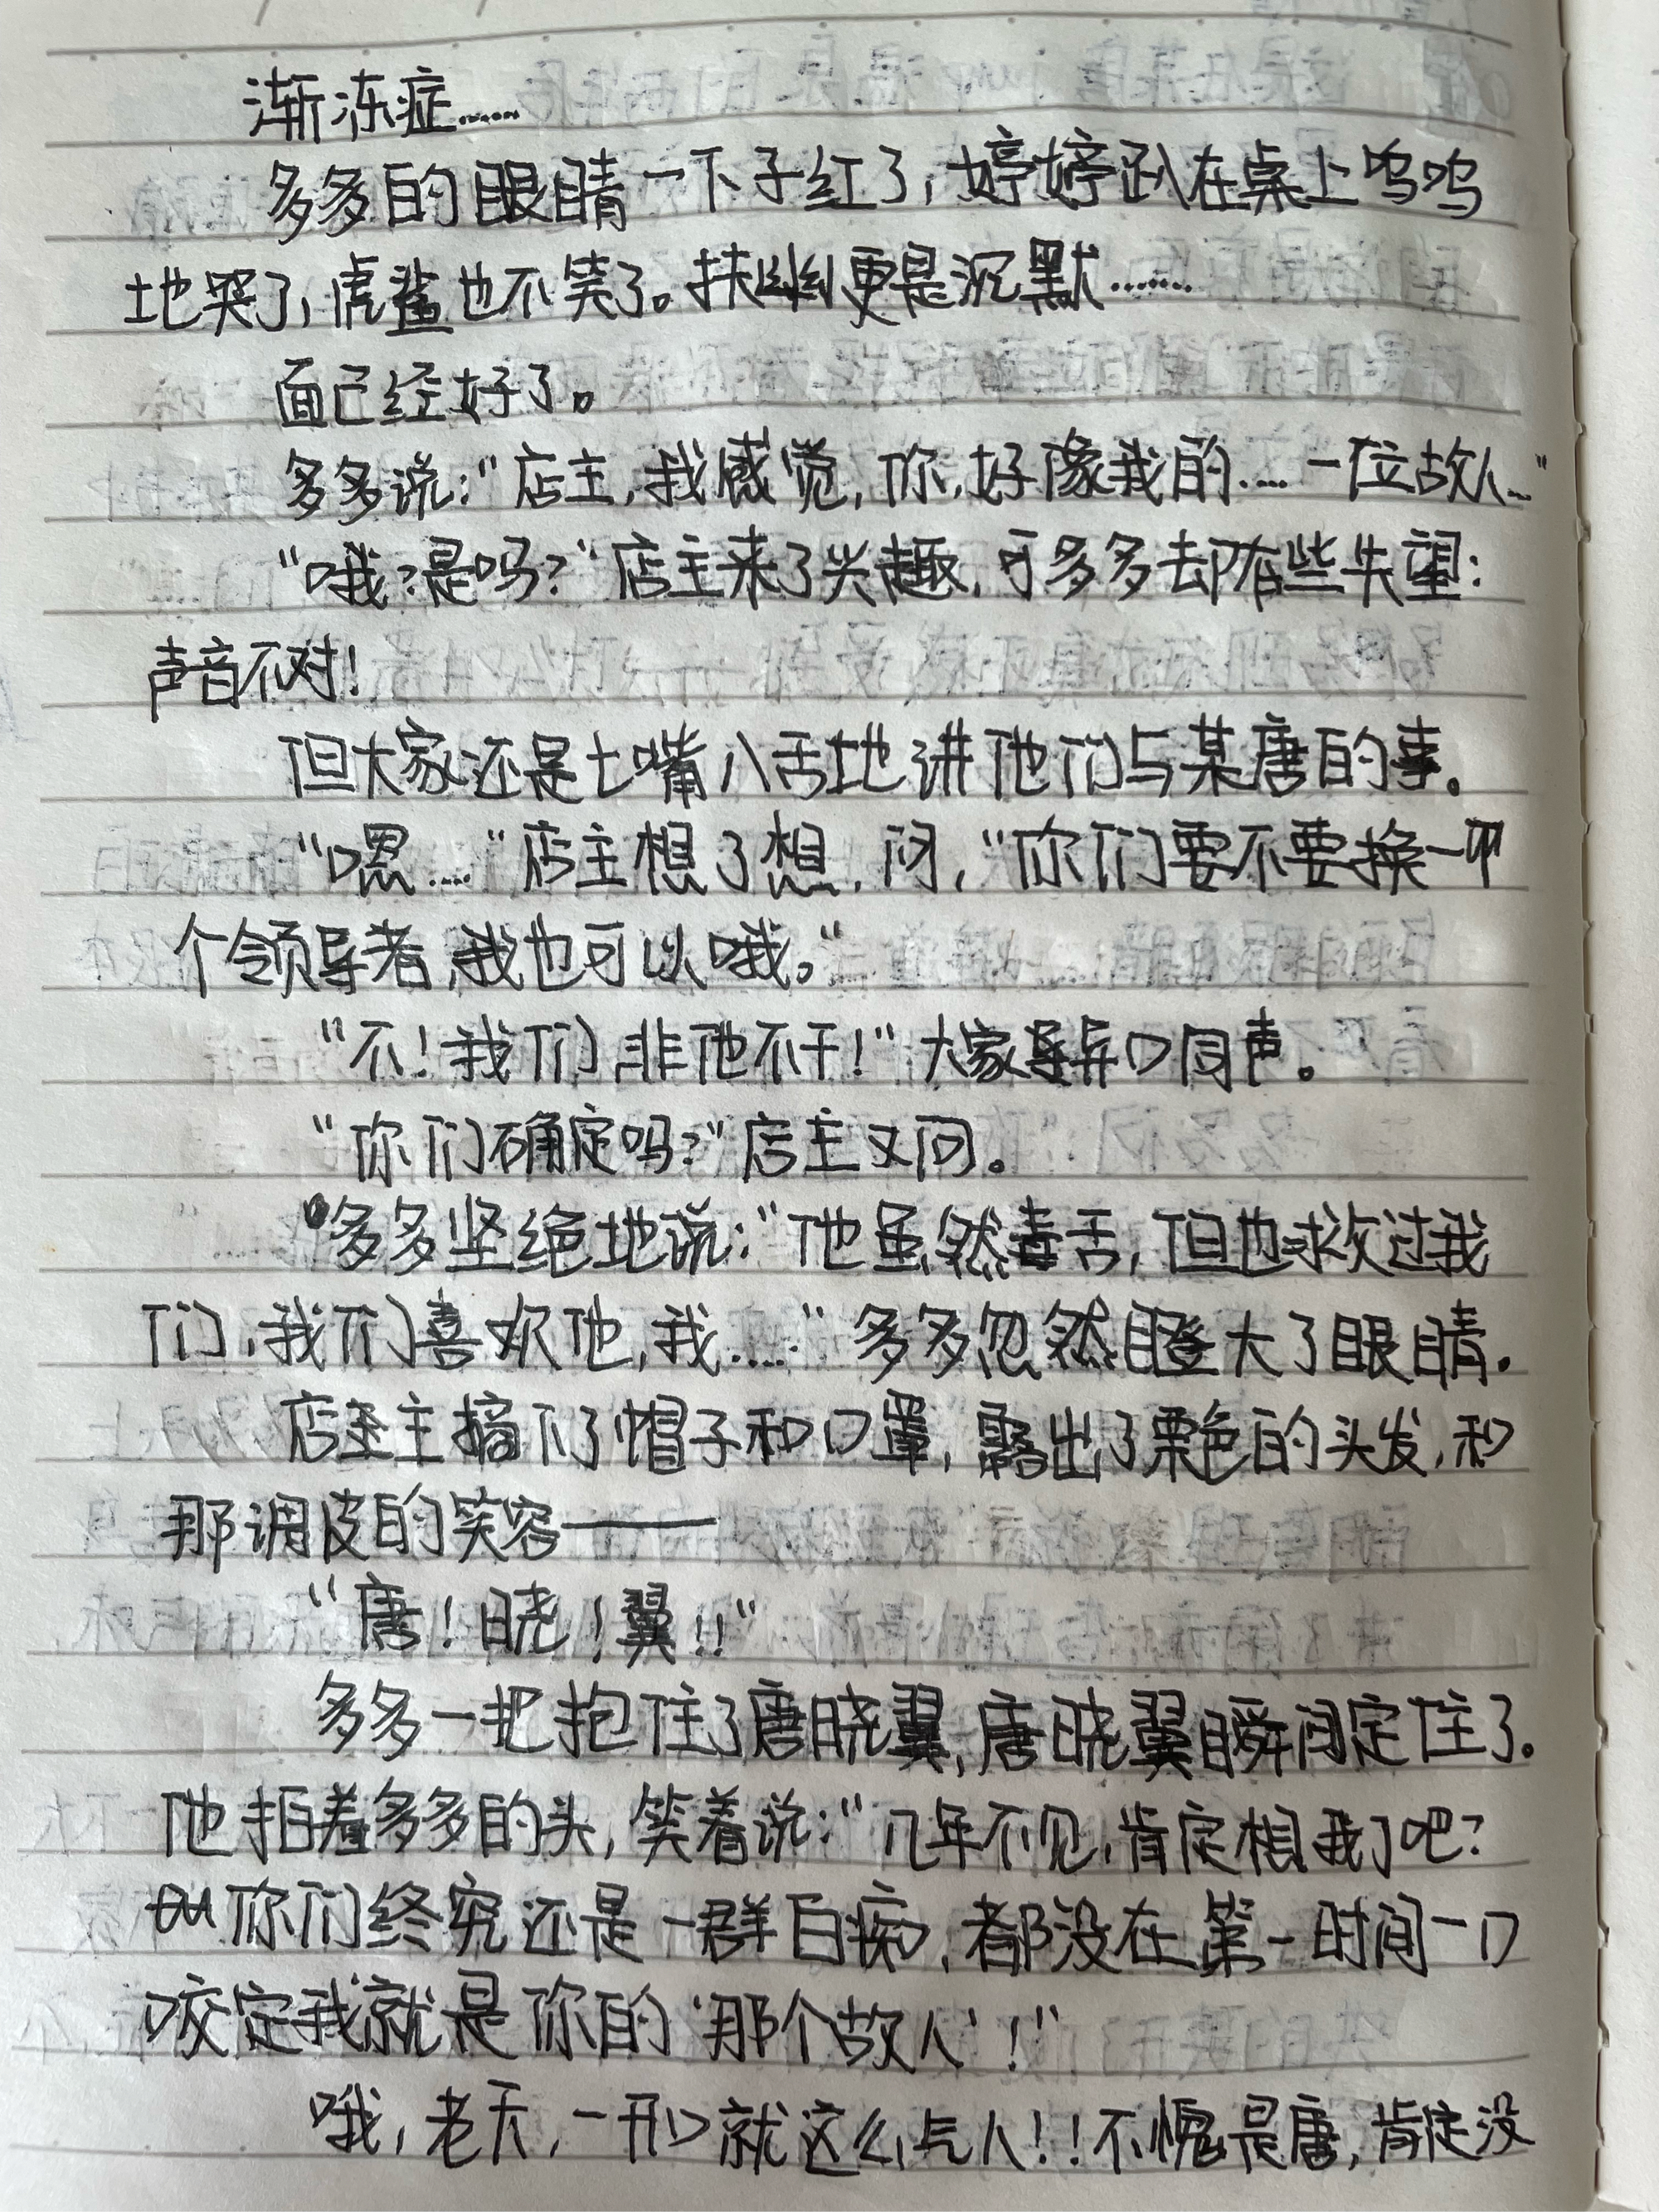 渐冻症……
多多的眼睛一下子红了，婷婷趴在桌上呜呜
地哭了，虎鲨也不笑了。扶幽更是沉默……
面已经好了。
多多说：“店主，我感觉，你，好像我的……一位故人…”
“哦？是吗？”店主来了兴趣，可多多却有些失望：
声音不对！
但大家还是七嘴八舌地讲他们与某唐的事。
“嗯……”店主想了想，问，“你们要不要换一
个领导者，我也可以哦。”
“不！我们非他不干！”大家异口同声。
“你们确定吗？”店主又问。
多多坚绝地说：“他虽然毒舌，但也救过我
们，我们喜欢他，我……”多多忽然瞪大了眼睛。
店主摘下了帽子和口罩，露出了栗色的头发，和
那调皮的笑容——
“唐！晓！翼！！”
多多一把抱住了唐晓翼，唐晓翼瞬间定住了。
他拍着多多的头，笑着说：“几年不见，肯定相我了吧？
你们终究还是一群白痴，都没在第一时间一口
咬定我就是你的‘那个故人’！”
哦，老天，一开口就这么气人！！不愧是唐，肯定没